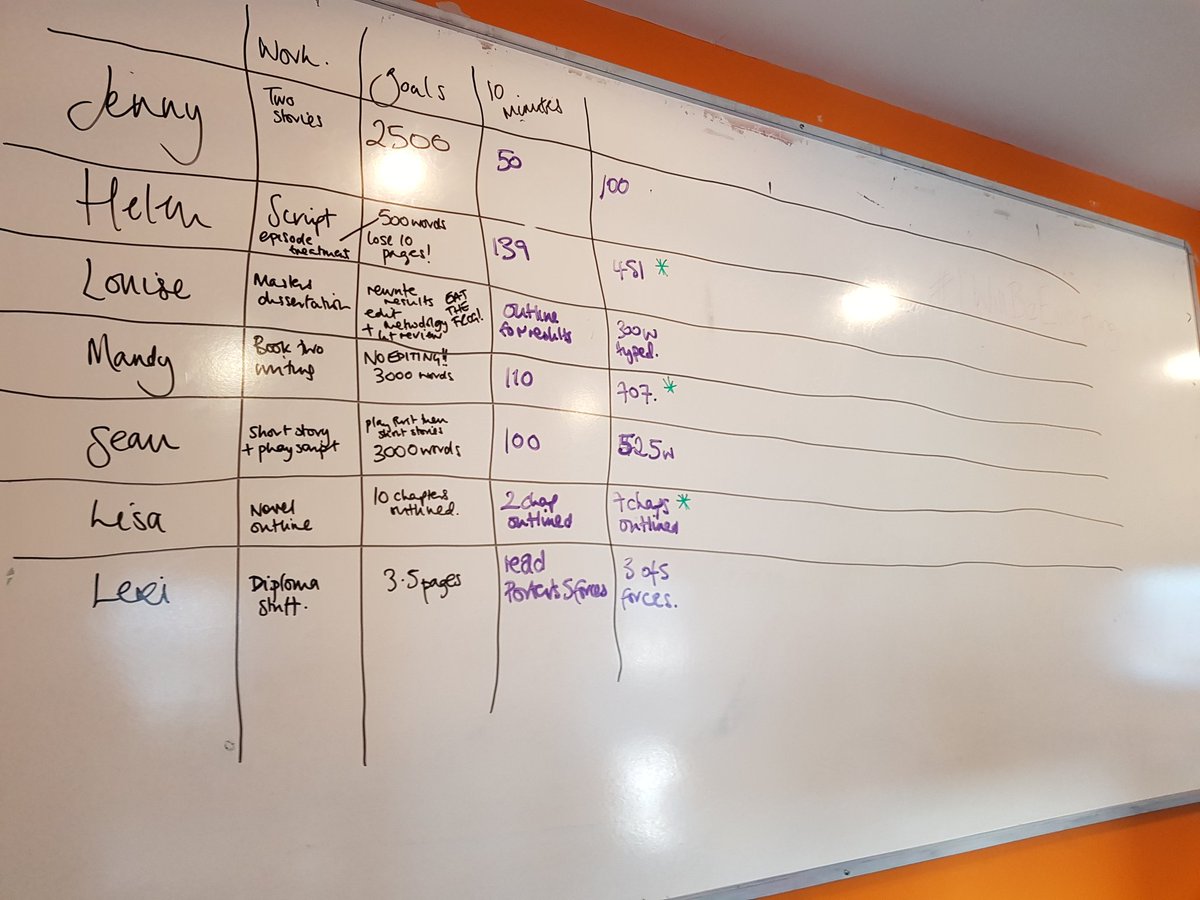 Work.
Goals
10
minutes
Jenny
Two
stories
2500
50
100
Helen
Script
episode
treatment
500 words
lose 10
pages!
139
451 *
Louise
Masters
dissertation
rewrite
results
edit
+ methodology
lit review
EAT
THE
FROG!
Outline
for results
300w
typed.
Mandy
Book two
writing
NO EDITING!!
3000 words
110
707. *
Sean
Short story
+ play script
play first then
short stories
3000 words
100
525w
Lisa
Novel
outline
10 chapters
outlined.
2 chap
outlined
7 chaps *
outlined
Lexi
Diploma
stuff.
3.5 pages
read
Porters 5 forces
3 of 5
forces.